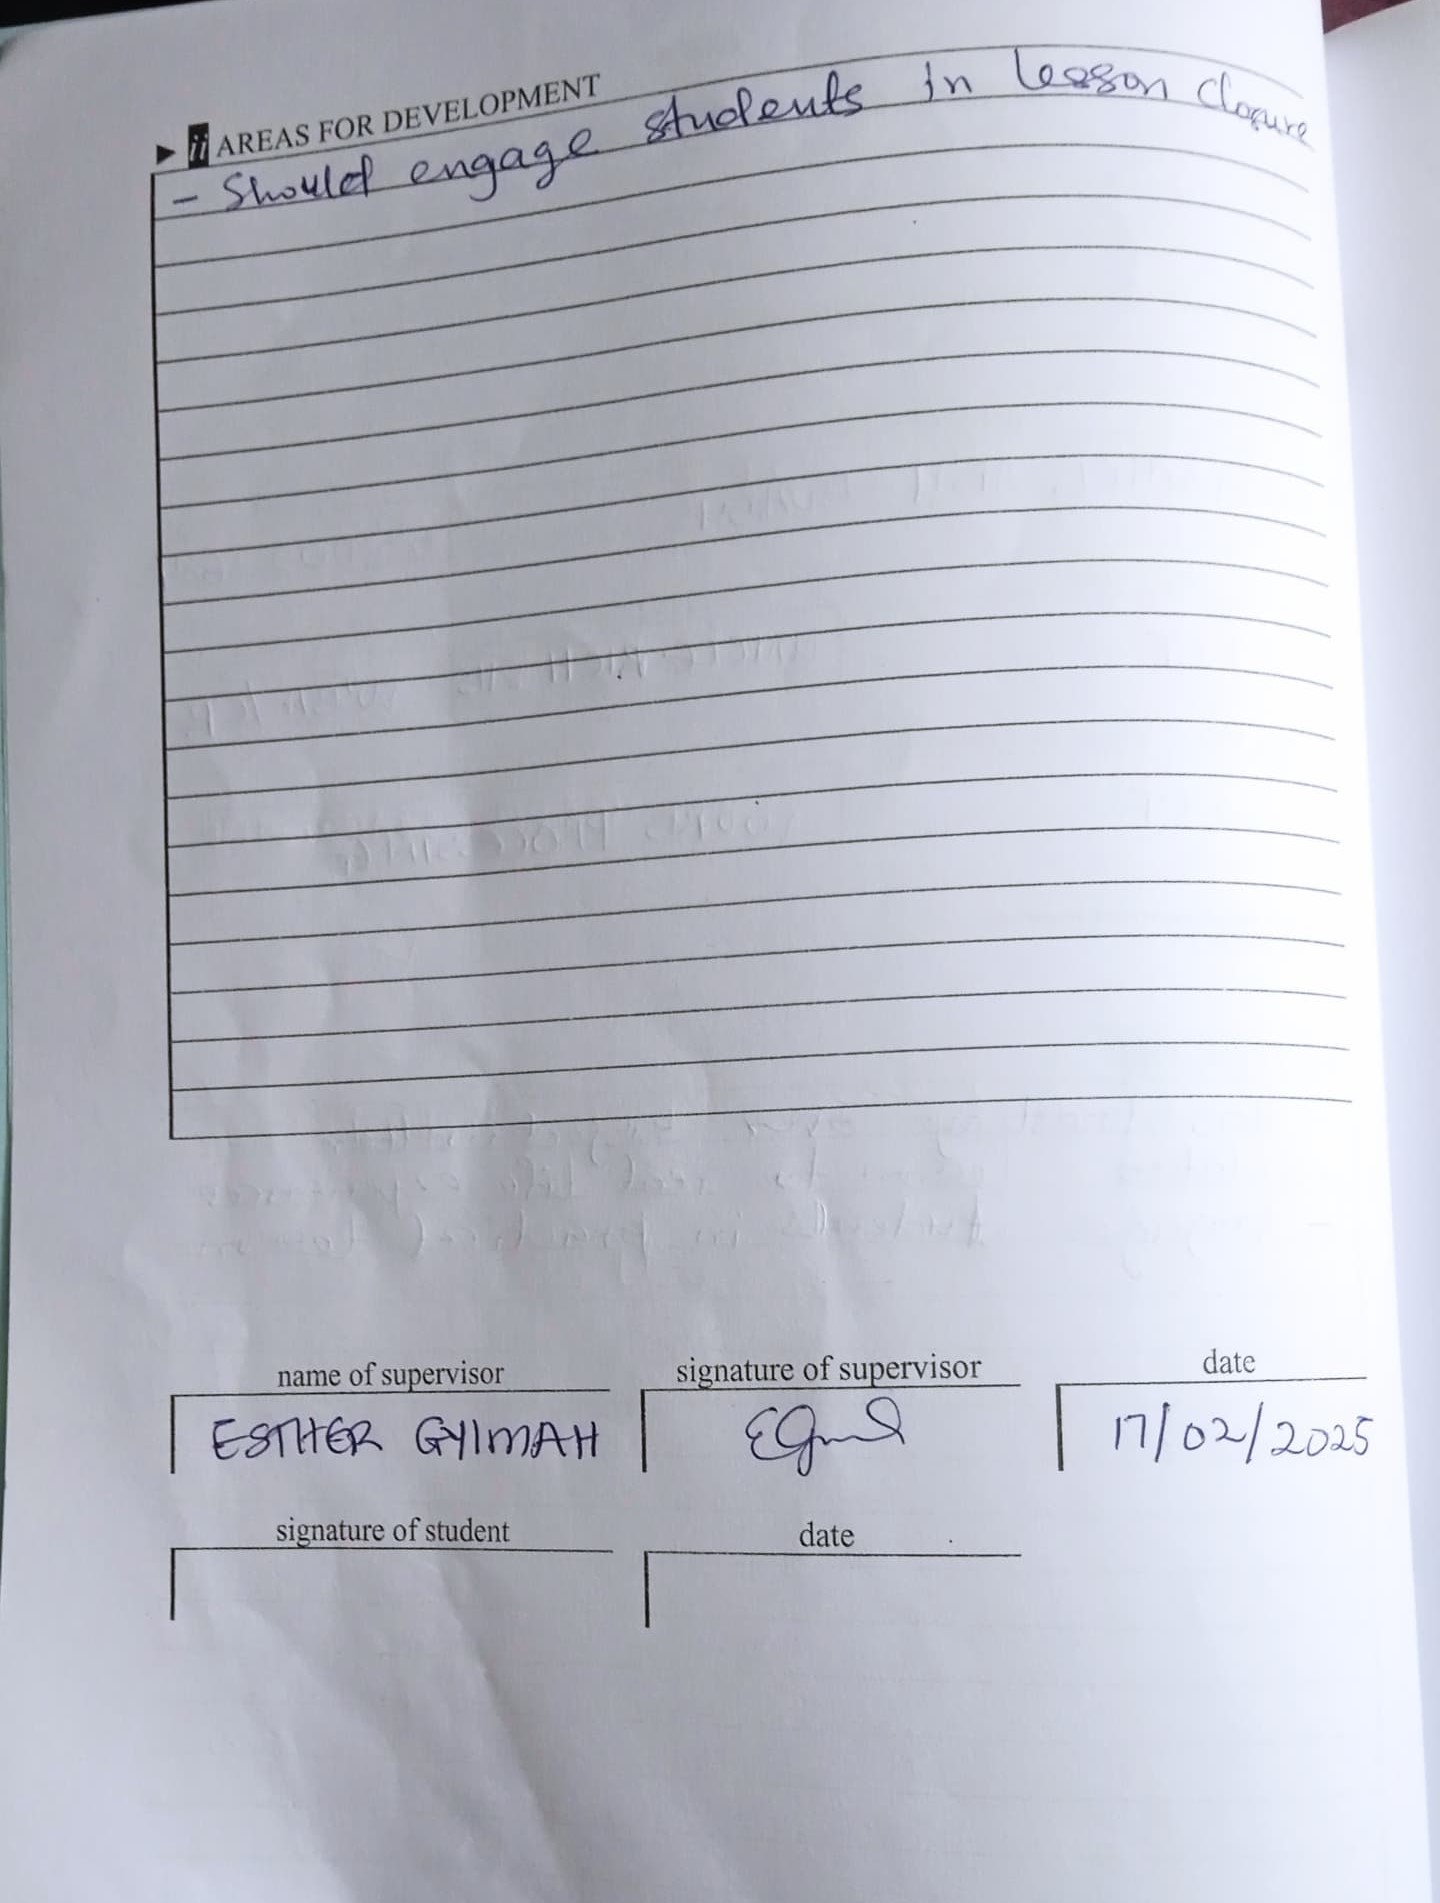 ► ii AREAS FOR DEVELOPMENT
- Should engage students in lesson closure
name of supervisor
signature of supervisor
date
ESTHER GYIMAH
17/02/2025
signature of student
date